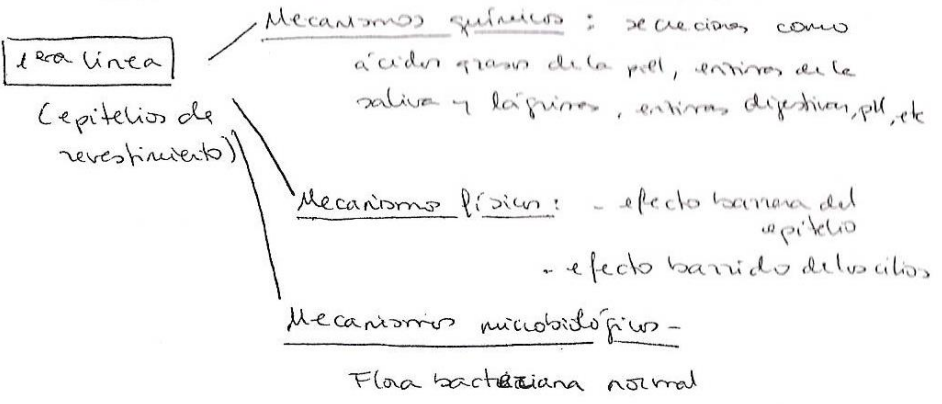 1era línea
(epitelios de
revestimiento)
Mecanismos químicos : secreciones como
ácidos grasos de la piel, enzimas de la
saliva y lágrimas, enzimas digestivas, pH, etc
Mecanismo físico: - efecto barrera del
epitelio
- efecto barrido de los cilios
Mecanismos microbiológicos -
Flora bacteriana normal